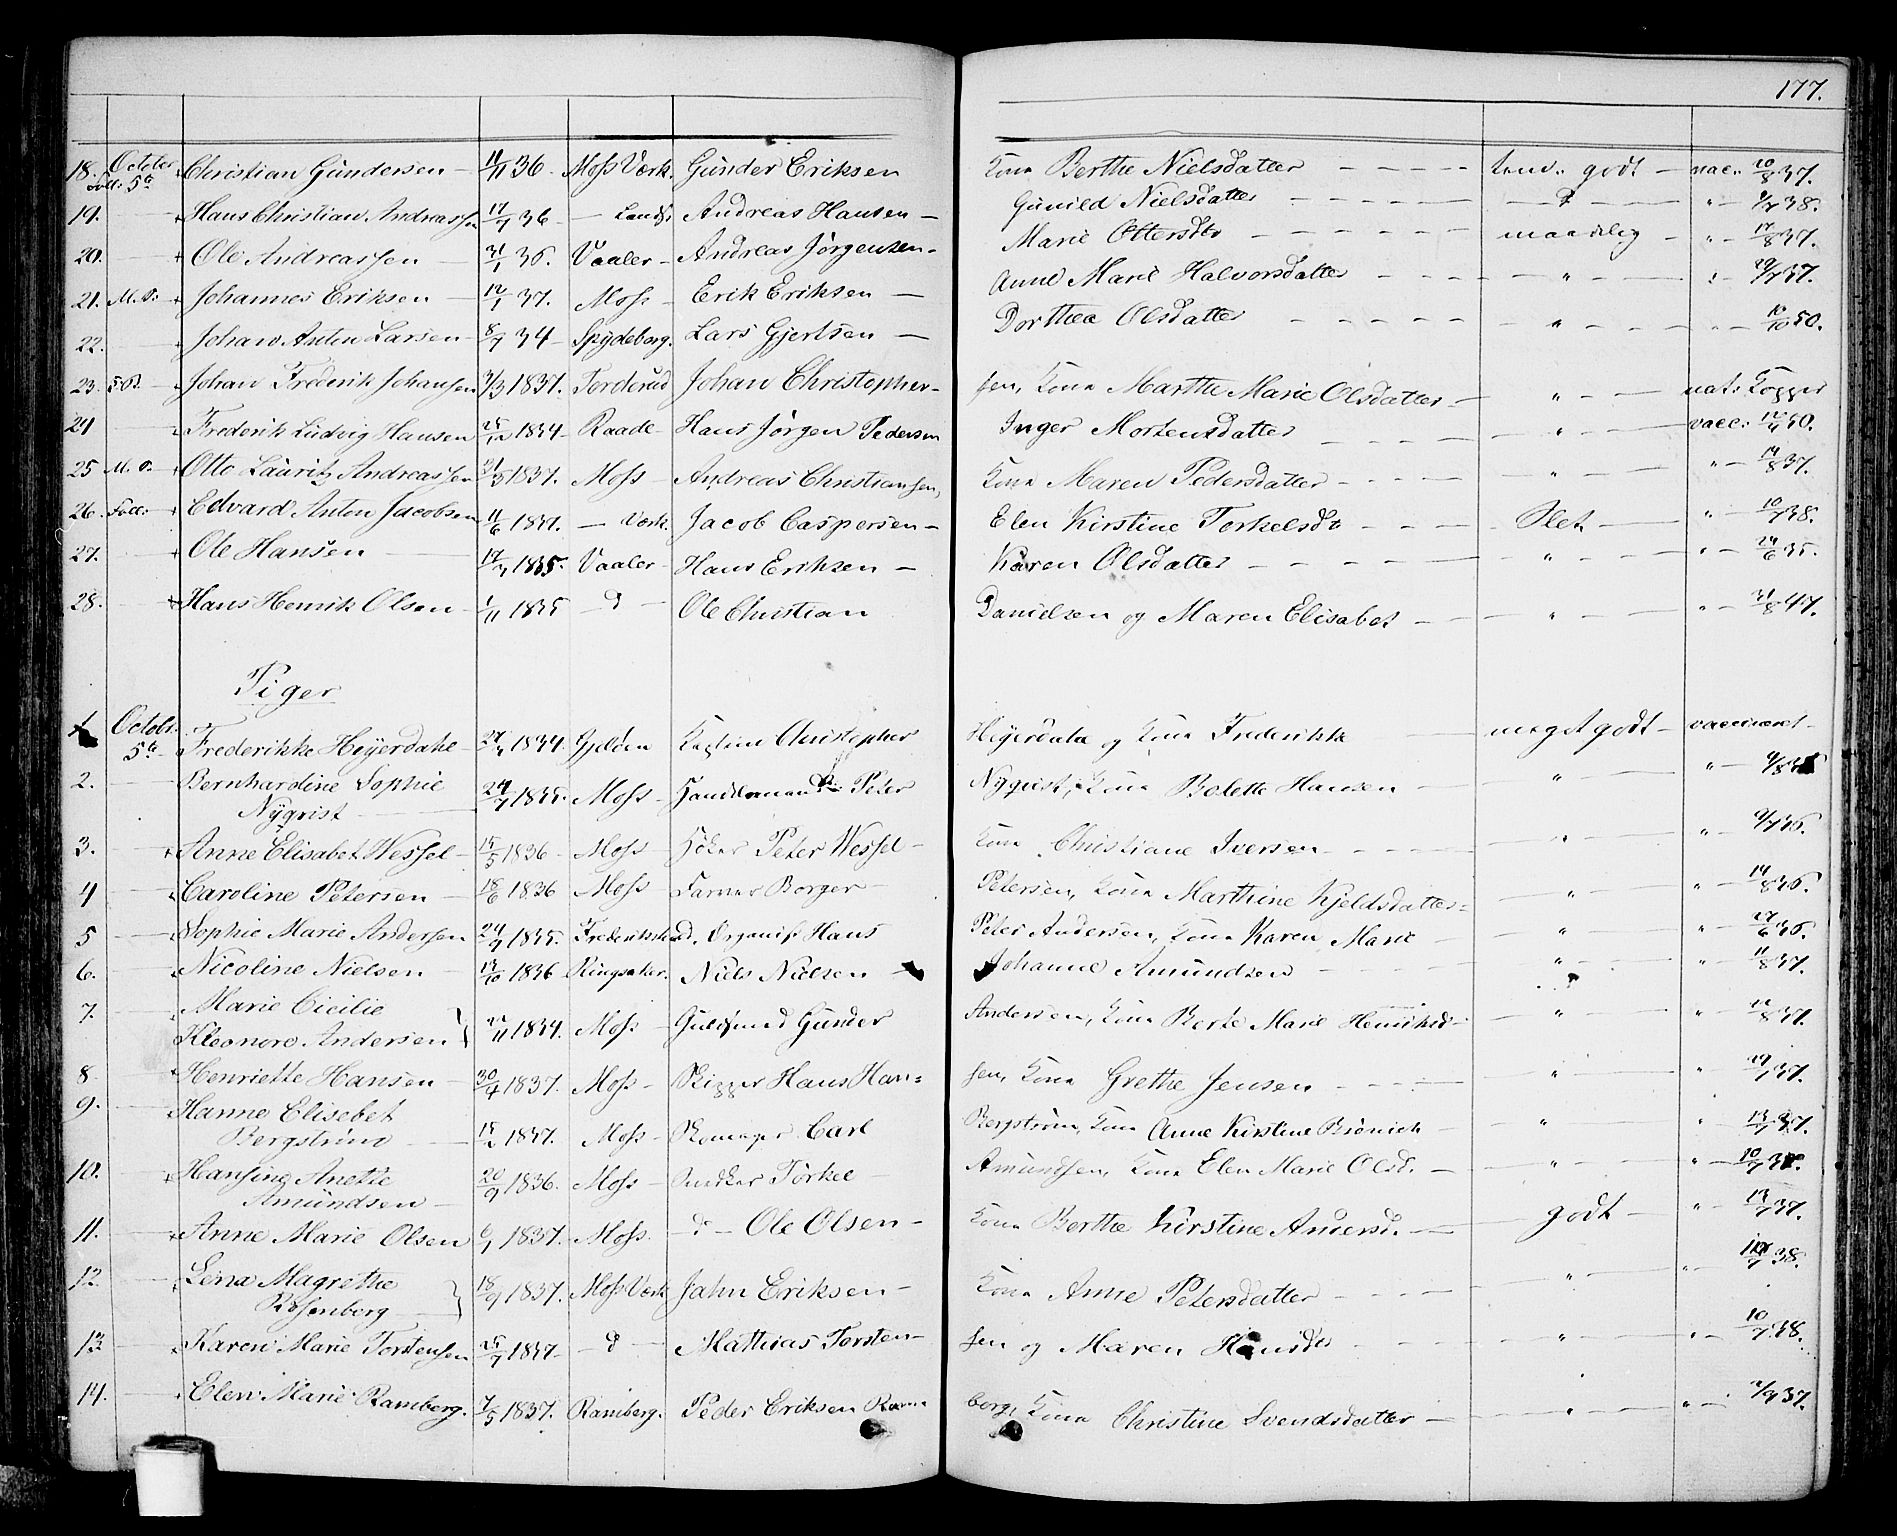 177.
18. Octbr 5te Christian Gundersen 11/11 36. Moss Værk. Gunder Eriksen Kona Berthe Nielsdatter godt vac. 20/8 37.
19. Hans Christian Andreassen 17/7 36 Andreas Hansen Gunild Nielsdatter d 38.
20. Ole Andreassen 31/1 36. Vaaler Andreas Jørgensen Marie Ottersdtr maadelig 17/8 37.
21. Johannes Eriksen 12/1 37. Moss Erik Eriksen Anne Marie Halvorsdatter " 29/7 37.
22. Johan Anton Larsen 8/7 34 Spydeberg. Lars Gjertsen Dorthea Olsdatter " 10/10 50.
23. Johan Frederik Johansen 7/3 1837. Torderud Johan Christopher- sen, Kona Marthe Marie Olsdatter " nat: Kopper
24 Frederik Ludvig Hansen 25/12 1834 Raade Hans Jørgen Pedersen Inger Mortensdatter " vacc: 50.
25 Otto Lauritz Andreassen 21/3 1837. Moss Andreas Christiansen, Kona Maren Pedersdatter " 14/8 37.
26. Edvard Anton Jacobsen 11/6 1837. Værk. Jacob Caspersen Elen Kirstine Torkelsdtr Slet 10/7 38.
27. Ole Hansen 1835. Vaaler Hans Eriksen Karen Olsdatter " 24/6 35.
28. Hans Henrik Olsen 1/11 1835 d Ole Christian Danielsen og Maren Elisabet " 31/8 47.
Piger
1 Octobr. 5te Frederikke Heyerdahl 1834. Gjeløen Captein Christopher Heyerdahl og Kona Frederikke meget godt vaccineret
2. Bernhardine Sophie
Nyqvist 24/7 1835. Moss Peter Nyqvist, Kona Bolette Hansen "
3. Anne Elisabet Wessel 15/5 1836 Moss Høker Peter Wessel Kona Christiane Iversen " 36.
4 Caroline Petersen 18/6 1836 Moss Farver Borger Petersen, Kona Marthine Kjeldsdatter " 14/8 36.
5 Sophie Marie Andersen 1835. Frederikstad, Organist Hans Peter Andersen, Kona Karen Marie " 27/6 36.
6. Nicoline Nielsen 1836 Ringsaker. Niels Nielsen Johanne Amundsen " 11/8 37.
7. Marie Cicilie
Eleonore Andersen 1834. Moss Guldsmed Gunder Andersen, Kona Berte Marie " 37.
8. Henriette Hansen 30/4 1837. Moss Skipper Hans Han= sen, Kona Grethe Jensen " 37.
9. Hanne Elisebet
Bergstrøm 1837. Moss Skomager Carl Bergstrøm, Kona Anne Kirstine Brönich " 37.
10. Hansine Anette
Amundsen 20/9 1836. Moss Snedker Torkel Amundsen, Kona Elen Marie Olsd. "
11. Anne Marie Olsen 6/1 1837. Moss. d Ole Olsen Kona Berthe Kirstine Andersd. godt 37.
12. Lena Magrethe
Rosenberg 18/9 1837. Moss Værk Jahn Eriksen Kona Anne Petersdatter " 38.
13 Karen Marie Torstensen 25/7 1837 d Mathias Torsten- sen og Maren Hansdtr " 10/7 38.
14. Elen Marie Ramberg. 7/5 1837. Ramberg. Peder Eriksen Ram berg, Kona Christine Svendsdatter " 37.